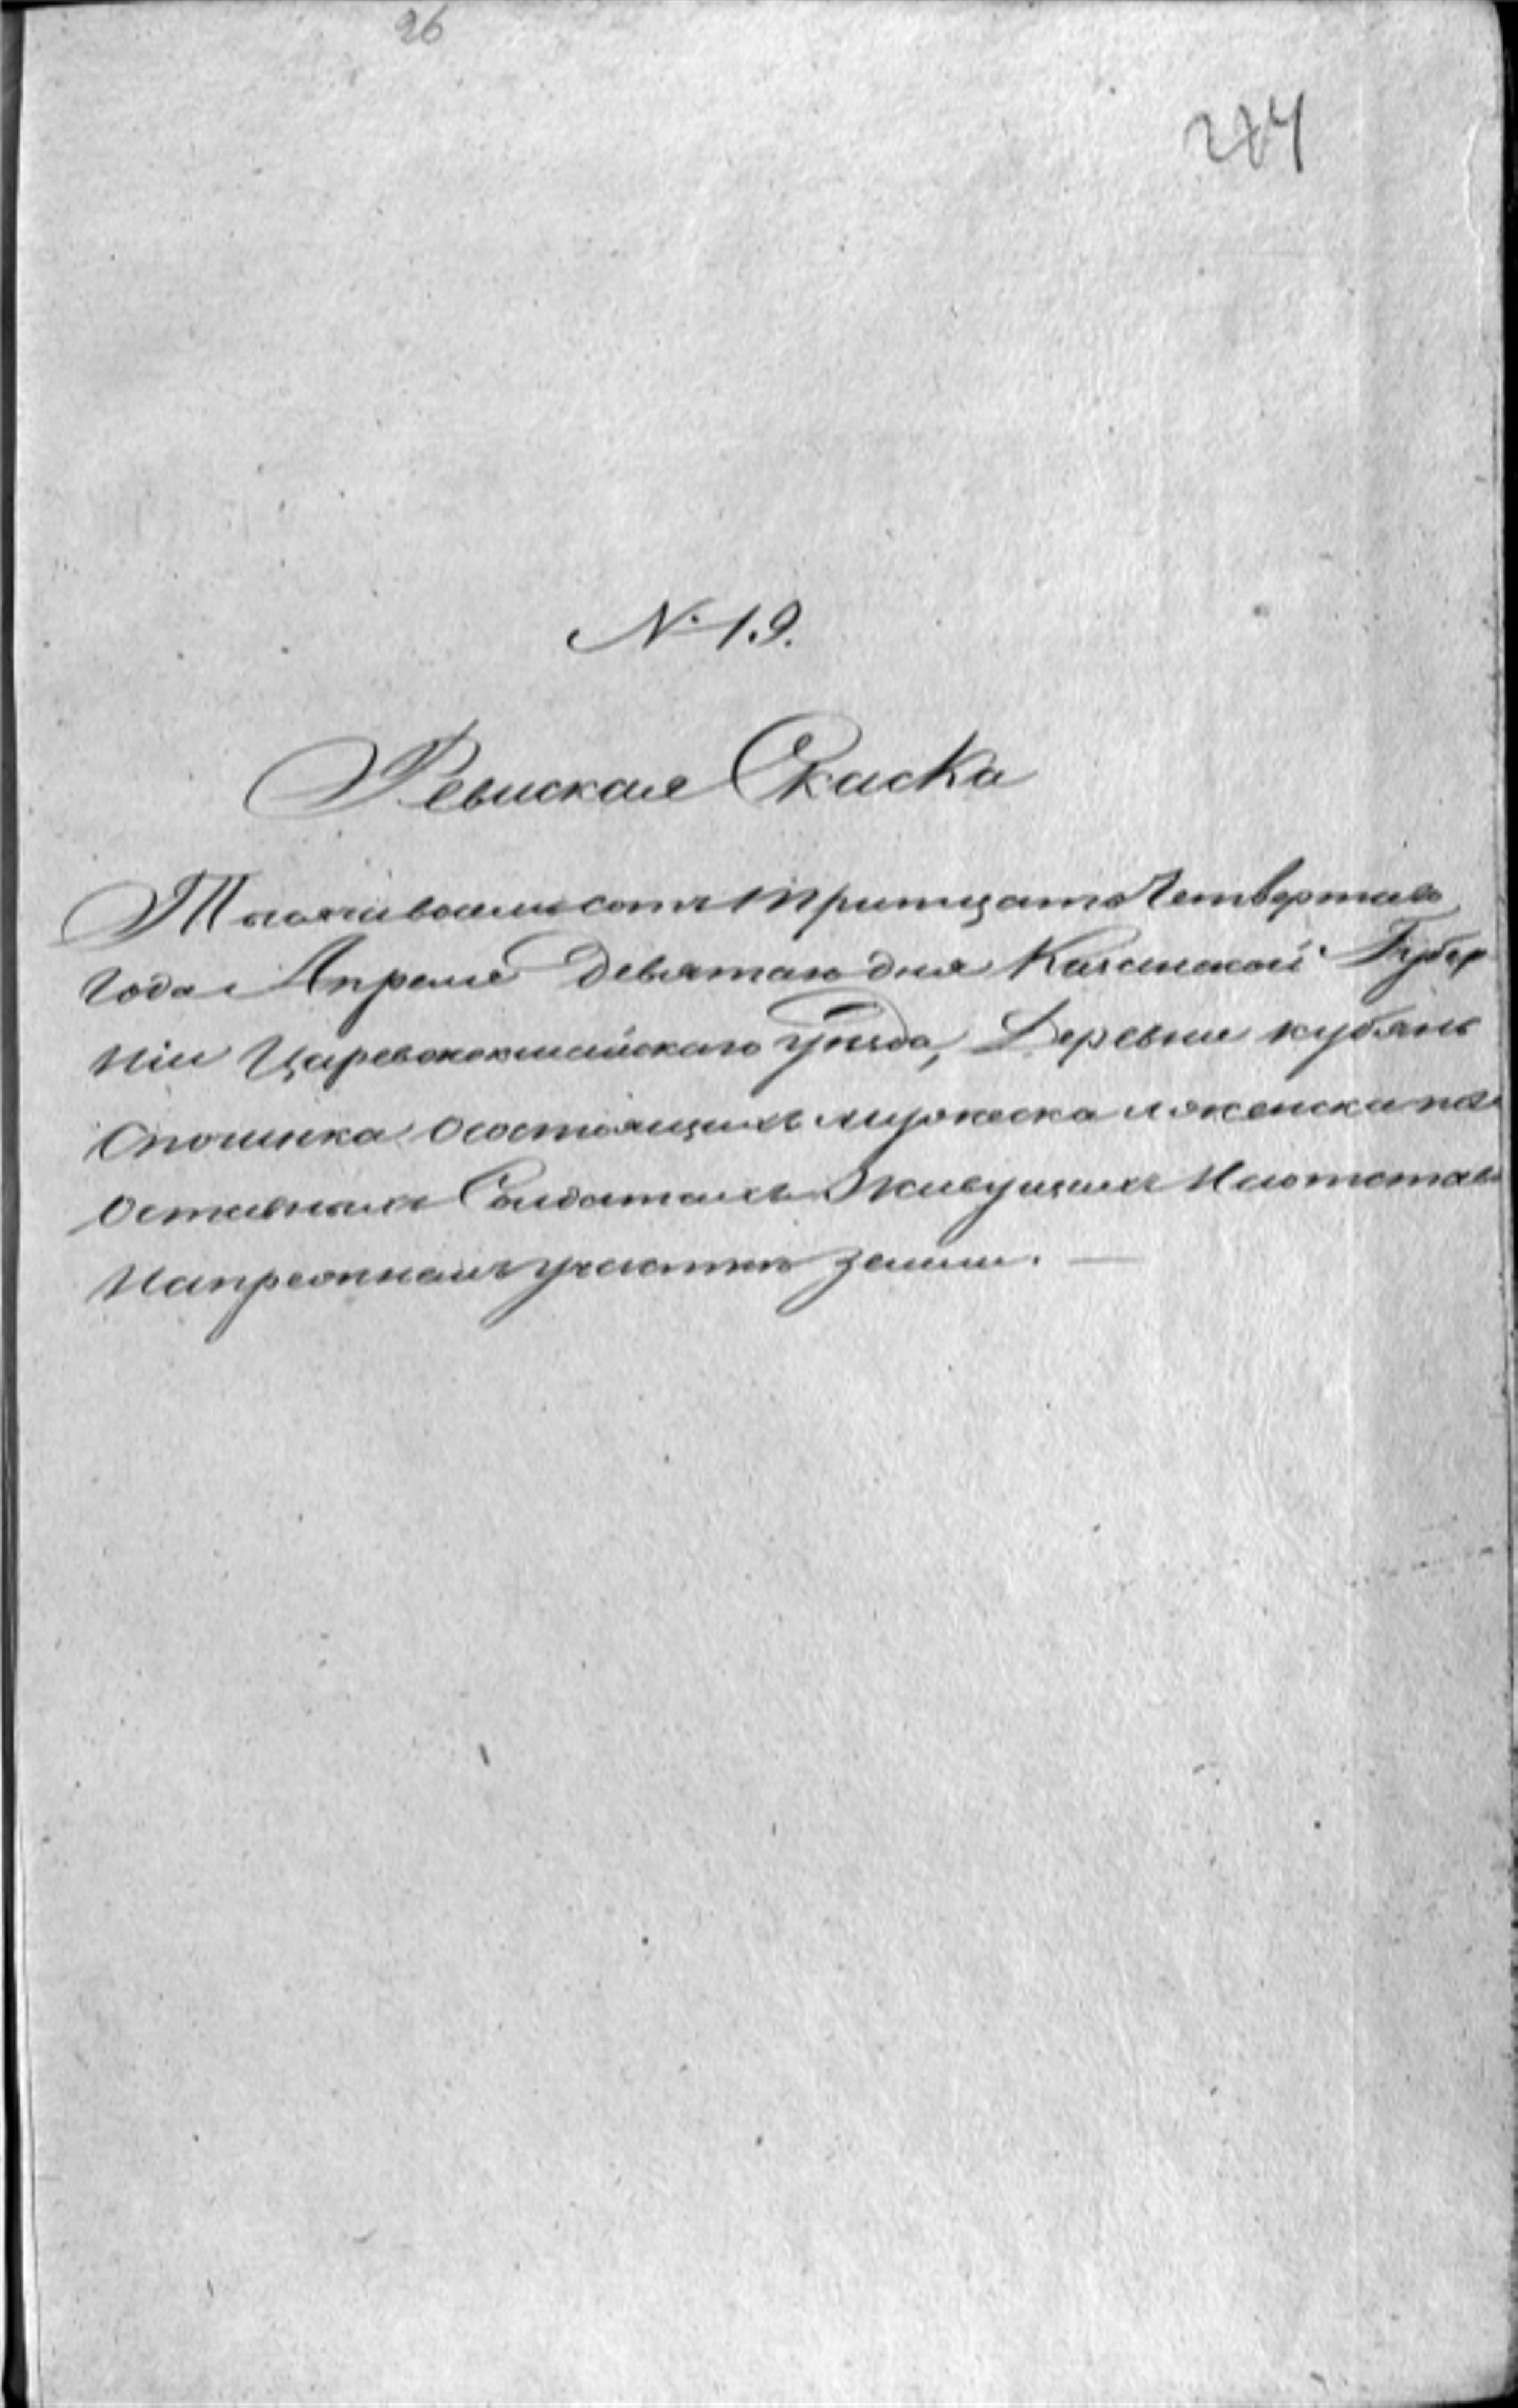 26
274
№ 19.
Ревиская Скаска
Тысяча восемьсотъ тритцать Четвертаго
Года Апреля Девятаго дня Казанской Губер
ніи Царевококшайскаго уѣзда, Деревни кубянь
Опочинка осостоящихъ мужеска иженска пола
Оставныхъ Солдатахъ Живущихъ
участкѣ земли. —